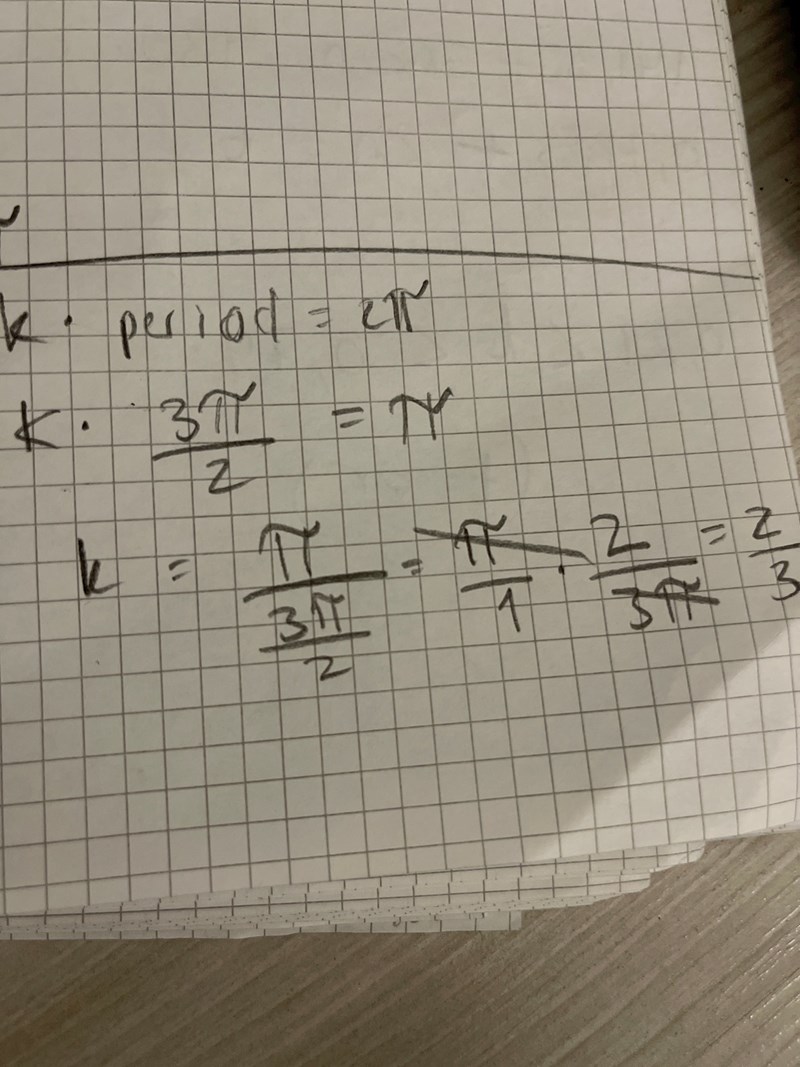 k · period = 2π
k · 3π/2 = π
k = π/(3π/2) = π/1 · 2/3π = 2/3